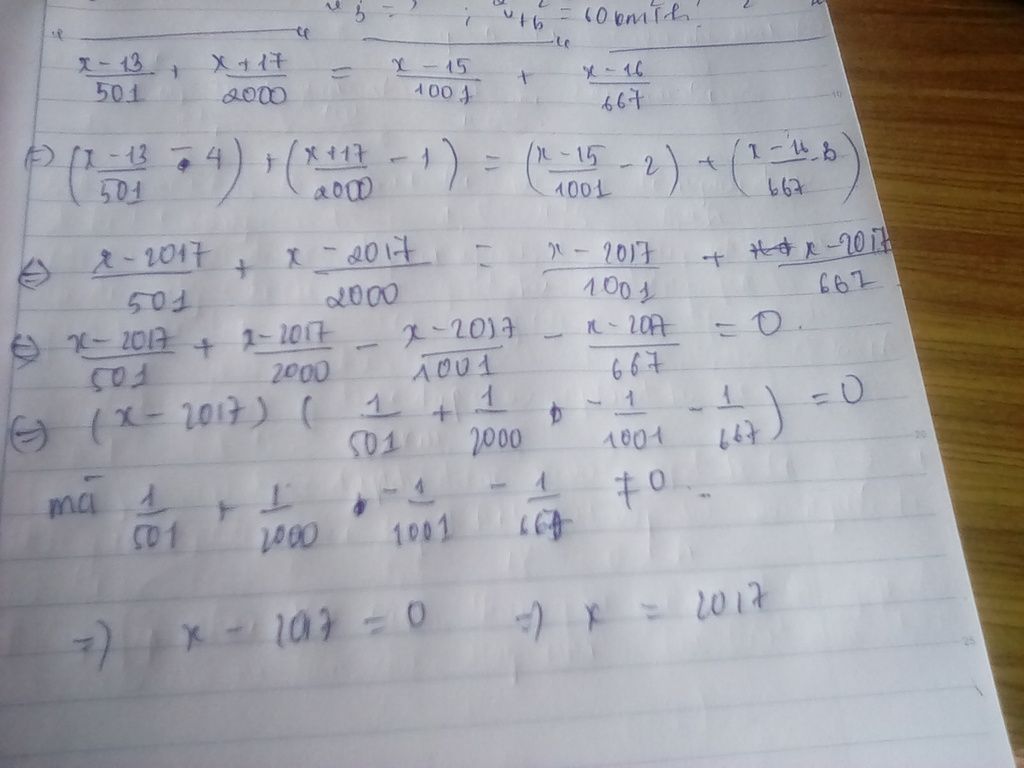 ; = 60 km/h.
x-13/501 + x+17/2000 = x-15/1001 + x-16/667
(=) (x-13/501 - 4) + (x+17/2000 - 1) = (x-15/1001 - 2) + (x-16/667 - 3)
(=) x-2017/501 + x-2017/2000 = x-2017/1001 + x-2017/667
(=) x-2017/501 + x-2017/2000 - x-2017/1001 - x-207/667 = 0.
(=) (x-2017) (1/501 + 1/2000 - 1/1001 - 1/667) = 0
mà 1/501 + 1/2000 - 1/1001 - 1/667 ≠ 0..
=) x - 2017 = 0 =) x = 2017